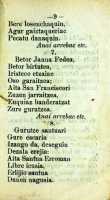 — 9 —
Bere losentchaquin,
Agur gaictzquerioc
Pecatu dunaquin.
Anai arrebac etc.
7.
Betor Jauna Fedea,
Betor bidutea,
Iristeco etxaine
Oso garaitzea:
Aita San Franciscori
Zuzen jarraitzea,
Euquina banderatzat
Zure guratzea.
Anai arrebac etc.
8.
Gurutze santuari
Gure escaria
Izango da, deseguin
Dezala erejia:
Aita Santua Erroman
Libre ipinia,
Erlijio santua
Danen nagusia.